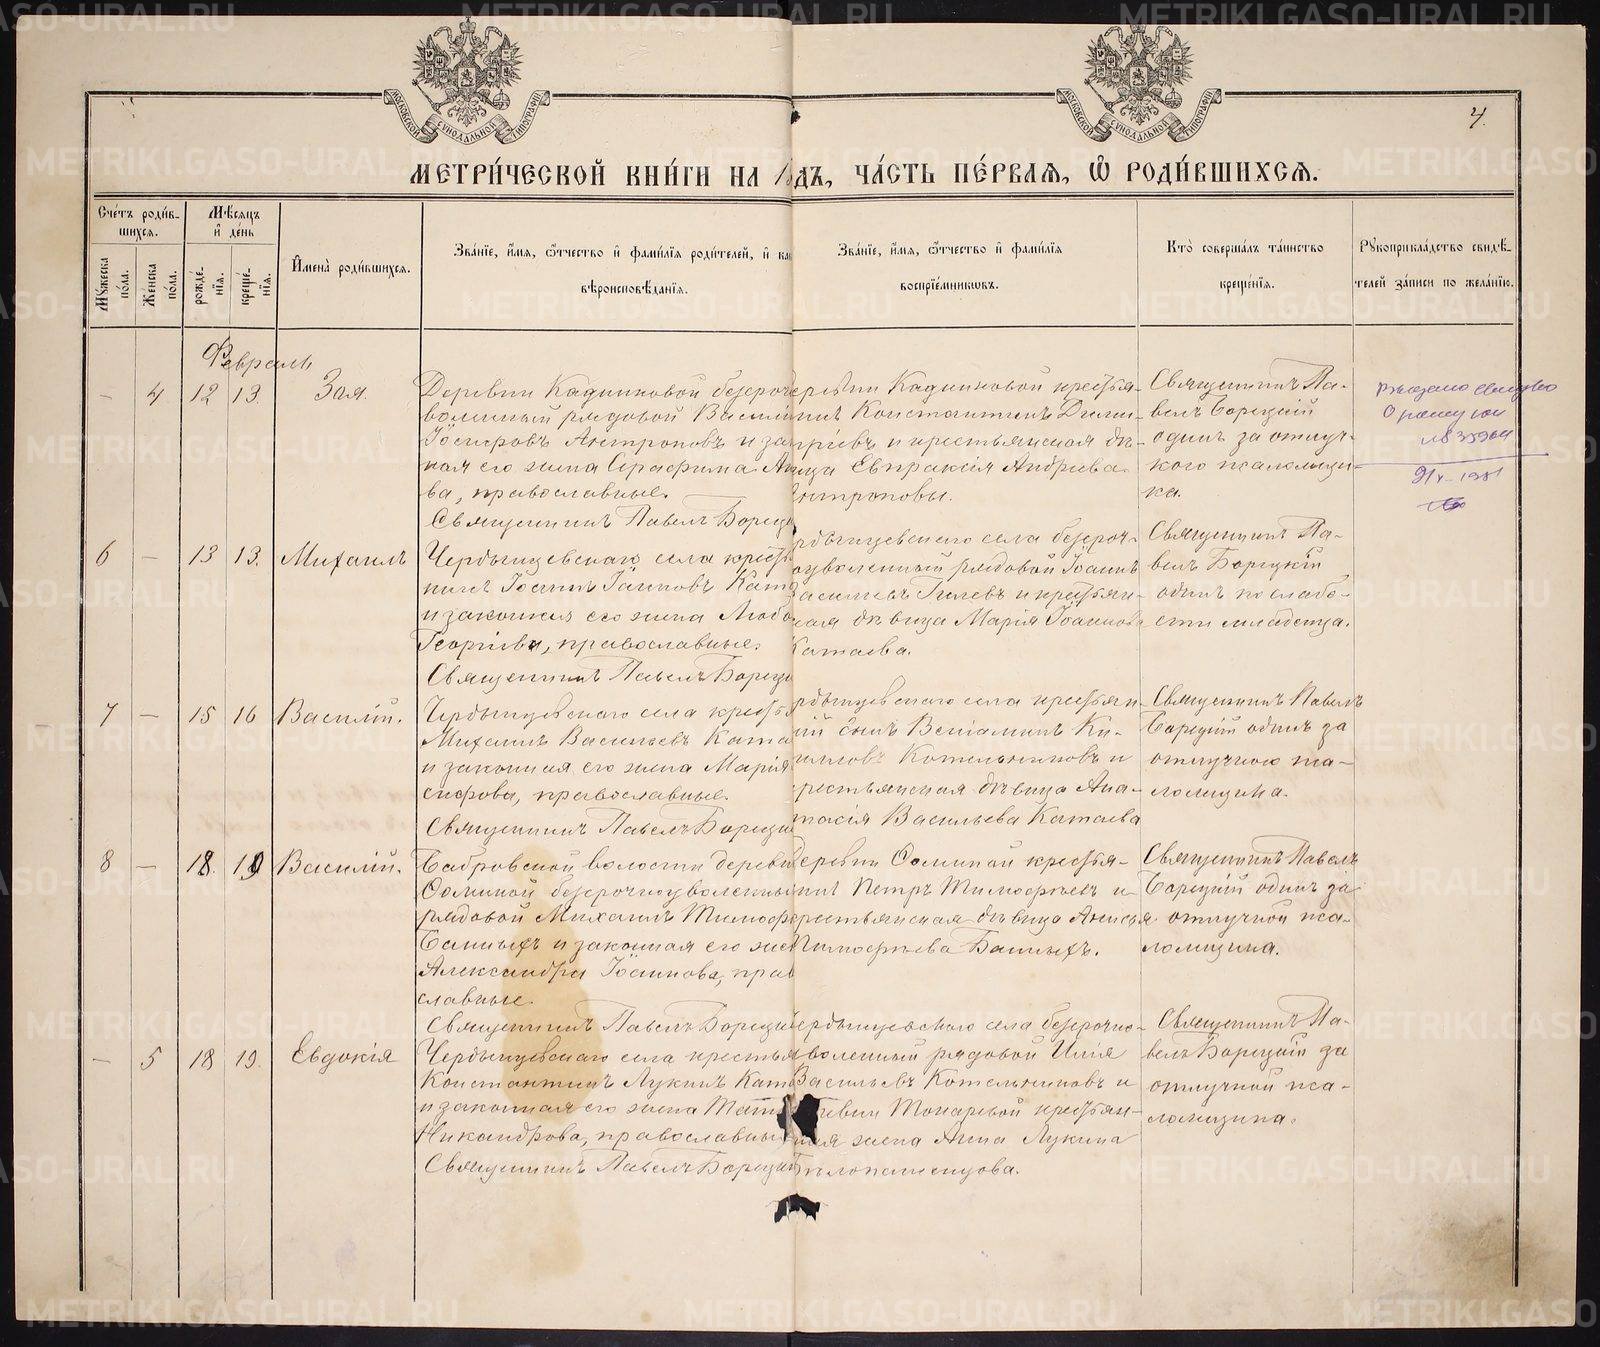 4.
МЕТРИ́ЧЕСКОЙ КНИ́ГИ НА 1 ДЪ, ЧА́СТЬ ПЕ́РВАѦ, Ѿ РОДИ́ВШИХСѦ.
Сче́тъ роди́в-
шихсѧ.
Му́жеска по́ла.
Же́нска по́ла.
Мѣ́сѧцъ
и҆ де́нь
рожде́-
нїѧ.
креще́-
нїѧ.
И҆мена̀ роди́вшихсѧ.
Зва́нїе, и҆́мѧ, ѻ҆́тчество и҆ фами́лїѧ роди́телей, и҆ ка
вѣроисповѣ́данїѧ.
Зва́нїе, и҆́мѧ, ѻ҆́тчество и҆ фами́лїѧ
воспрїе́мникѡвъ.
Кто̀ соверша́лъ та́инство
креще́нїѧ.
Рꙋкоприкла́дство свидѣ́-
телей за́писи по жела́нїю.
Февраль
– 4. 12 13. Зоя.
Деревни Кадниковой безсроч
воленный рядовой Васили
Іосифовъ Антроповъ и за
ная его жена Серафима Ан
ва, православные.
Священникъ Павелъ Борец
еревни Кадниковой крестья-
нинъ Константинъ Дими-
тріевъ и крестьянская дѣ-
вица Евпраксія Андреева
Антроповы.
Священникъ Па-
велъ Борецкій
одинъ за отлуч-
кого псаломщи-
ка.
6 – 13 13. Михаилъ
Чердынцевскаго села крестья
нинъ Іоаннъ Іоанновъ Ката
и законная его жена Любо
Георгіева, православные.
Священникъ Павелъ Борец
рдынцевскаго села безсроч-
оуволенный рядовой Іоаннъ
Васильевъ Гилевъ и крестьян-
ская дѣвица Марія Іоаннова
Катаева.
Священникъ Па-
велъ Борецкій
одинъ по слабо-
сти младенца.
7 – 15 16 Василій.
Чердынцевскаго села крестья
Михаилъ Васильевъ Ката
и законная его жена Марія
сифова, православные.
Священникъ Павелъ Борецки
рдынцевскаго села крестьян
ій сынъ Веніаминъ Ки-
Котельниковъ и
крестьянская дѣвица Ана-
стасія Васильева Катаева
Священникъ Павелъ
Борецкій одинъ за
отлучкою пса-
ломщика.
8 – 18. 19 Василій.
Бобровской волости деревни
Соминой безсрочноуволенны
рядовой Михаилъ Тимоф
Банныхъ и законная его жен
Александра Іоаннова, прав
славные.
Священникъ Павелъ Борецкій
Деревни Соминой крестья-
нинъ Петръ Тимофѣевъ и
крестьянская дѣвица Анисья
Тимофѣева Банныхъ.
Священникъ Павелъ
Борецкій одинъ за
отлучкой пса-
ломщика.
– 5 18 19. Евдокія
Чердынцевскаго села крестья
Константинъ Лукинъ Кат
и законная его жена Тать
Никандрова, православны
Священникъ Павелъ Борецкій
ердынцевскаго села безсрочно-
уволенный рядовой Илія
Васильевъ Котельниковъ и
ревни Токаревой крестьян-
ская жена Анна Лукина
Бѣлопашенцова.
Священникъ Па-
велъ Борецкій за
отлучкой пса-
ломщика.